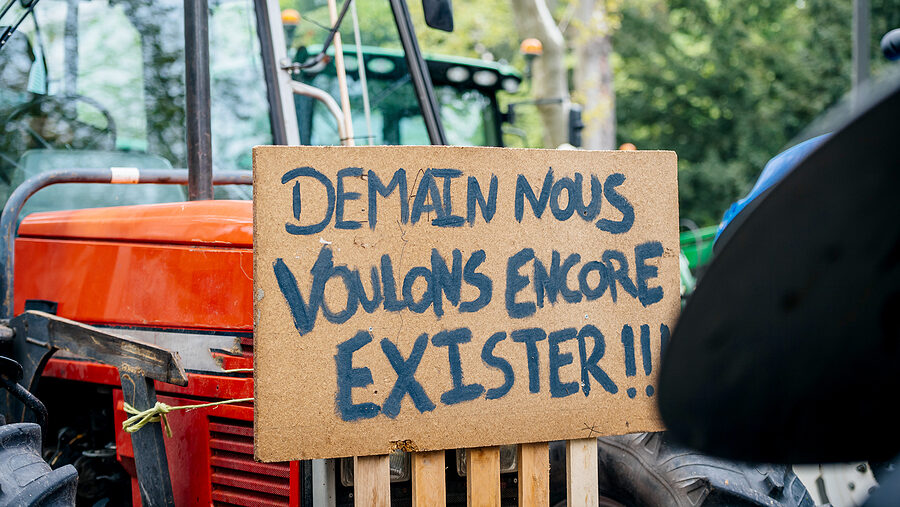 DEMAIN NOUS
VOULONS ENCORE
EXISTER!!!